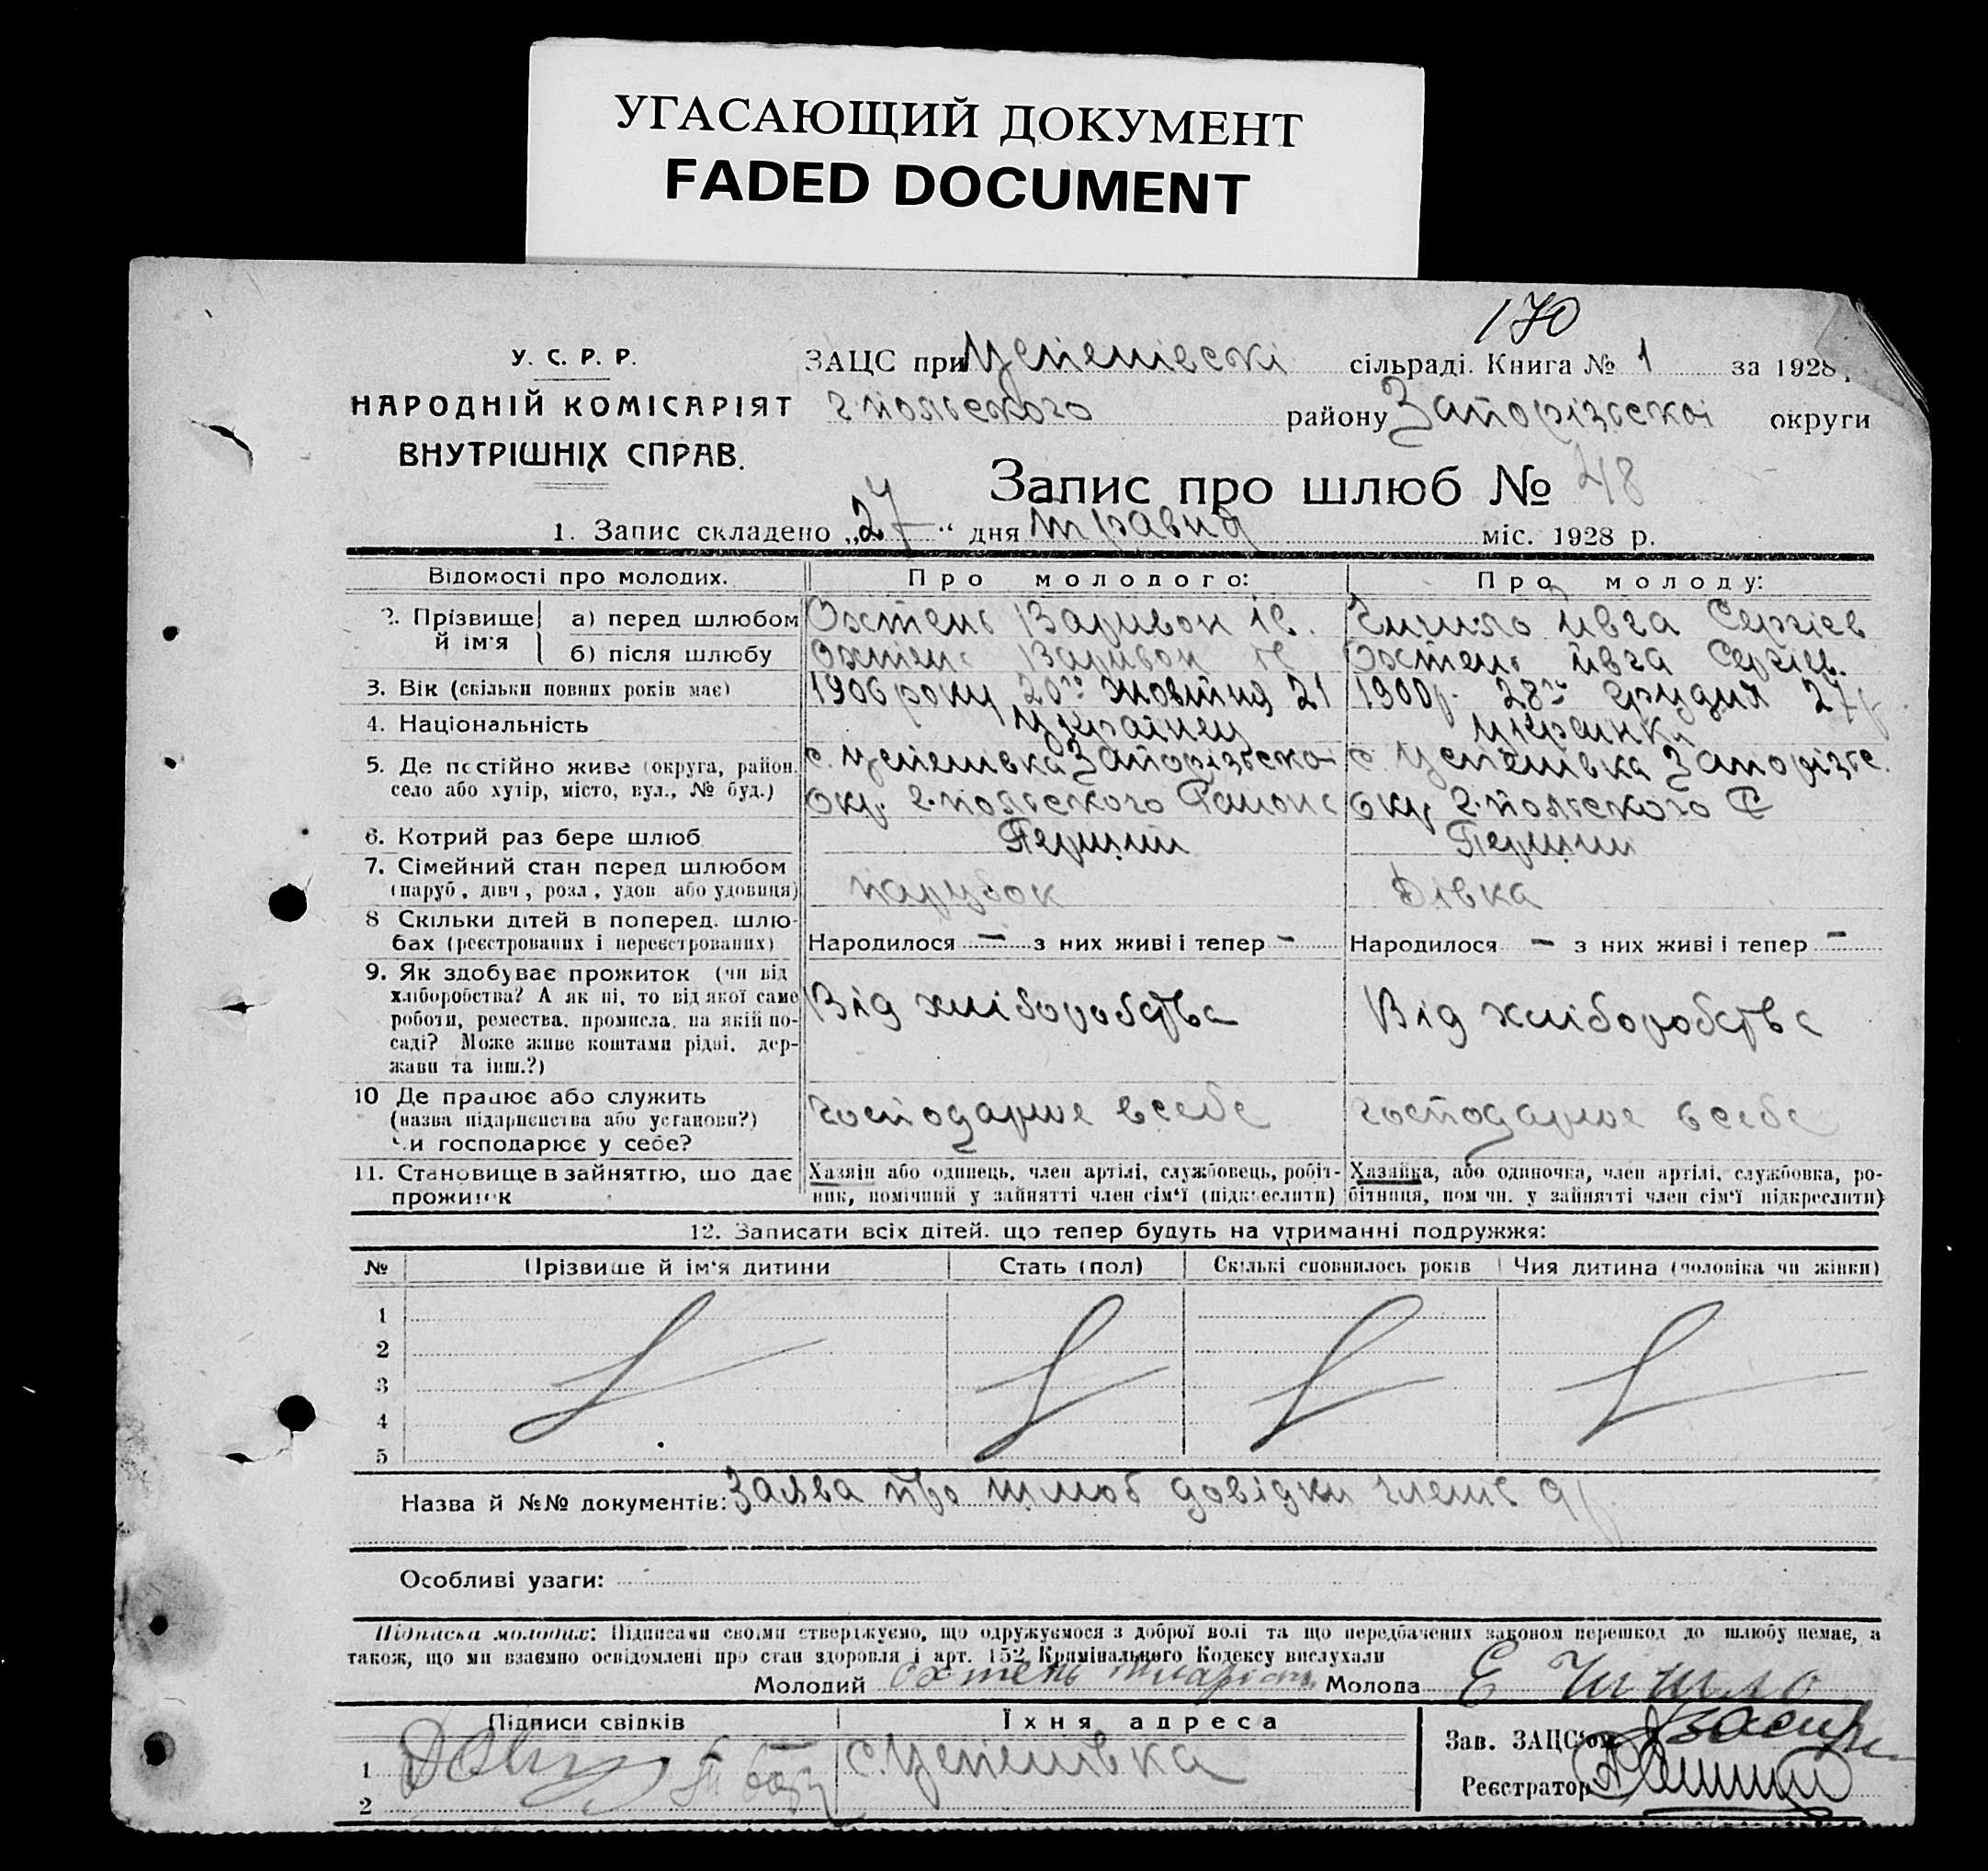 УГАСАЮЩИЙ ДОКУМЕНТ
FADED DOCUMENT
170
У. С. Р. Р.
НАРОДНІЙ КОМІСАРІЯТ
ВНУТРІШНІХ СПРАВ.
ЗАЦС при Успенівскі сільраді. Книга № 1 за 1928
г-польского району Запорізської округи
Запис про шлюб № 48
1. Запис складено „27“ дня травня міс. 1928 р.
Відомості про молодих. Про молодого: Про молоду:
2. Прізвище й ім'я
а) перед шлюбом Охтень Варивон Ів. Чичило Ивга Сергіев
б) після шлюбу Охтень Варивон Ів Охтень Ивга Сергіев.
3. Вік (скільки повних років має) 1906 року 20го жовтня 21 1900р. 28го грудня 27р.
4. Національність Українец Украинка
5. Де постійно живе (округа, район, село або хутір, місто, вул., № буд.) с. Успенівка Запорізської окр. г-польского Району с. Успенівка Запорізьс. окр. г-польского Р
6. Котрий раз бере шлюб Перший Перший
7. Сімейний стан перед шлюбом (паруб., дівч., розл., удов. або удовиця) парубок Дівка
8 Скільки дітей в поперед. шлюбах (реєстрованих і нереєстрованих) Народилося — з них живі і тепер - Народилося - з них живі і тепер -
9. Як здобуває прожиток (чи від хліборобства? А як ні, то від якої саме роботи, ремества, промисла, на якій посаді? Може живе коштами рідні, держави та інш.?) Від хліборобства Від хліборобства
10 Де працює або служить (назва підприємства або установи?) Чи господарює у себе? Господарює в себе господарює в себе
11. Становище в зайняттю, що дає прожиток
Хазяін або одинець, член артілі, службовець, робітник, помічний у зайнятті член сім'ї (підкреслити)
Хазяйка, або одиночка, член артілі, службовка, робітниця, помічн. у зайнятті член сім'ї підкреслити)
12. Записати всіх дітей, що тепер будуть на утриманні подружжя:
№ Прізвише й ім'я дитини Стать (пол) Скількі сповнилось років Чия дитина (чоловіка чи жінки)
1
2
3
4
5
Назва й №№ документів: Заява про шлюб довідки
Особливі уваги:
Підписка молодих: Підписами своїми стверджуємо, що одружуємося з доброї волі та що передбачених законом перешкод до шлюбу немає, а
також, що ми взаємно освідомлені про стан здоровля і арт. 152 Кримінального Кодексу вислухали
Молодий Охтень Молода Е Чичило
Підписи свідків Їхня адреса
1 с. Успенивка
2
Зав. ЗАЦС'ом
Реєстратор